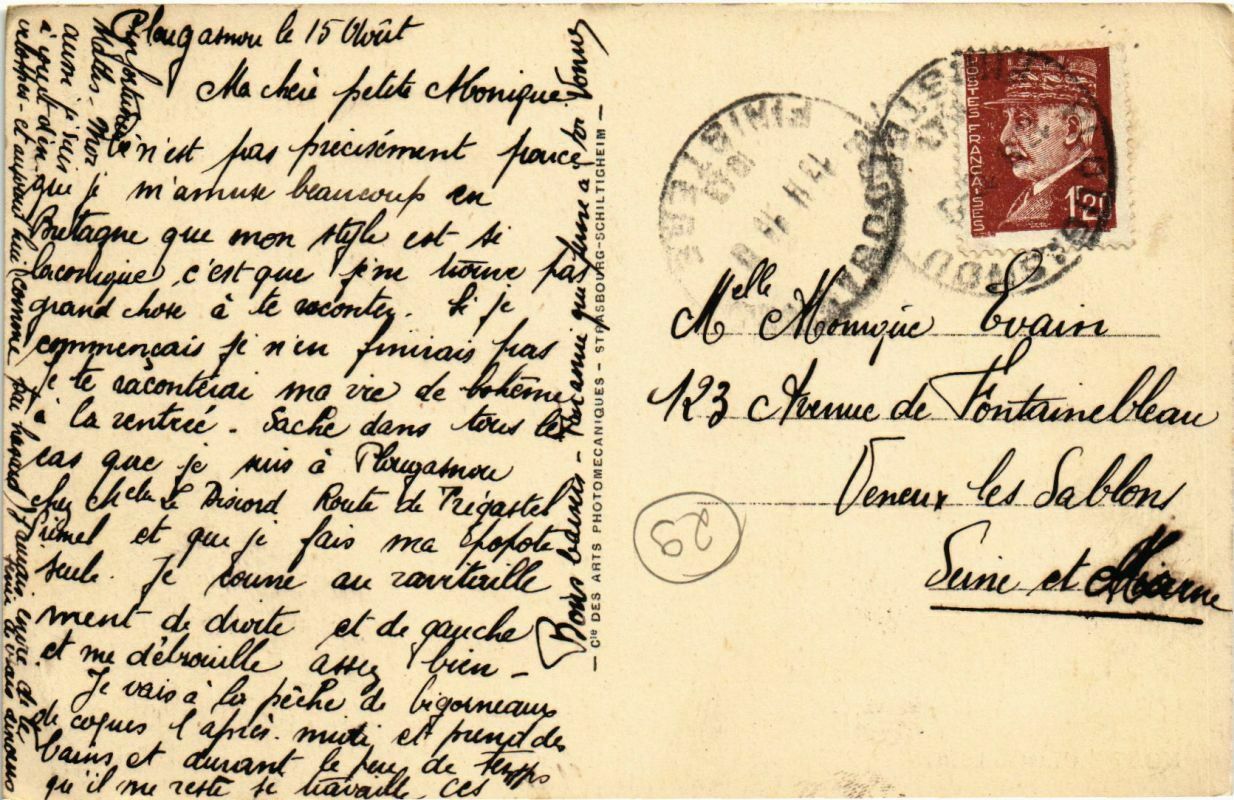 Plougasnou le 15 Août
Ma chère petite Monique
Ce n'est pas précisément parce
que je m'amuse beaucoup en
Bretagne que mon style est si
laconique, c'est que je ne trouve pas
grand chose à te raconter. Si je
commençais je n'en finirais pas
Je te raconterai ma vie de bohème
à la rentrée. Sache dans tous les
cas que je suis à Plougasnou
chez Le Discord Route de Trégastel
Primel et que je fais ma popote
seule. Je courre au ravitaille
ment de droite et de gauche
et me débrouille assez bien -
Je vais à la pêche de bigorneaux
de coques l'après-midi et prend des
bains et durant le peu de temps
qu'il me reste je travaille ces
Maths - Moi
aussi je suis
à court d'en
veloppes - et aujourd'hui comme par hasard j'aurais envie de te
Bons bains - Ton amie qui pense à toi
Cie DES ARTS PHOTOMECANIQUES - STRASBOURG-SCHILTIGHEIM -
POSTES FRANÇAISES
1,20
FINISTERE
Melle Monique Evain
123 Avenue de Fontainebleau
Veneux les Sablons
Seine et Marne
29